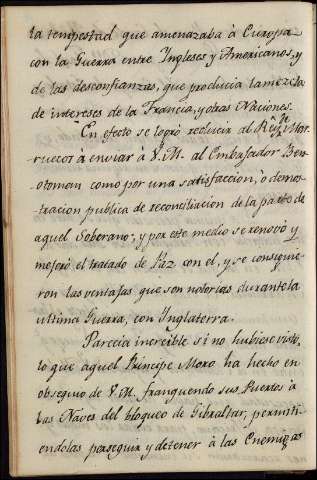 la tempestad que amenazaba à Europa
con la Guerra entre Ingleses y Americanos, y
de las desconfianzas, que producia la mezcla
de intereses de la Francia, y otras Naciones.
En efecto se logró reducir al Rey de Mar-
ruecos à enviar à V.M. al Embaxador Ben-
otoman como por una satisfaccion, ò demos-
tracion publica de reconciliacion de la parte de
aquel Soberano; y por este medio se renovó y
mejoró el tratado de Paz con el, y se consiguie-
ron las ventajas que son notorias durante la
ultima Guerra, con Inglaterra.
Parecia increible si no hubiese visto,
lo que aquel Principe Moro ha hecho en
obsequio de V.M. franquendo sus Puertos à
las Naves del bloqueo de Gibraltar, permiti-
endolas perseguir y detener à las Enemigas